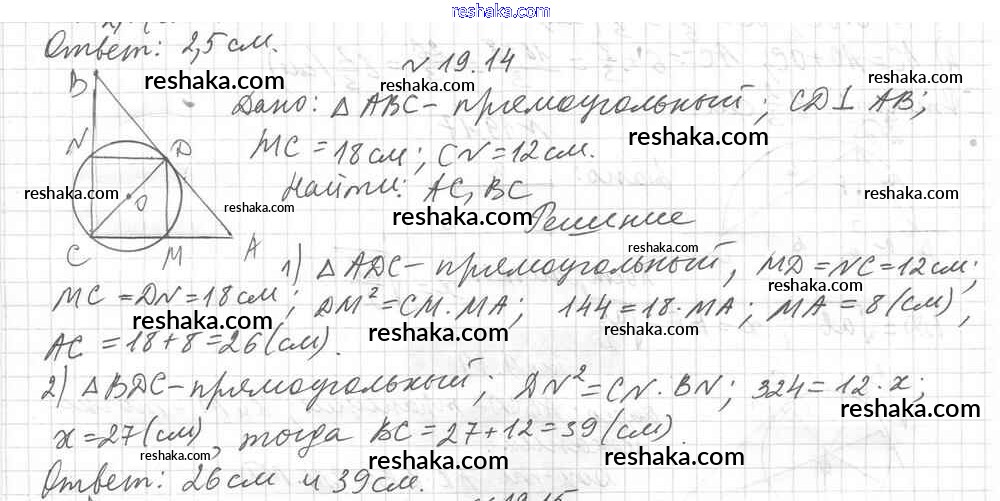 reshaka.com
Ответ: 2,5 см.
N 19.14
Дано: △ ABC - прямоугольный; CD⊥ AB;
MC = 18 см; CN = 12 см.
Найти: AC, BC
Решение
B
N
D
O
C
M
A
1) △ ADC - прямоугольный, MD = NC = 12 см;
MC = DN = 18 см; DM² = CM · MA; 144 = 18 · MA; MA = 8 (см),
AC = 18 + 8 = 26 (см).
2) △ BDC - прямоугольный; DN² = CN · BN; 324 = 12 · x;
x = 27 (см), тогда BC = 27 + 12 = 39 (см).
Ответ: 26 см и 39 см.
reshaka.com
reshaka.com
reshaka.com
reshaka.com
reshaka.com
reshaka.com
reshaka.com
reshaka.com
reshaka.com
reshaka.com
reshaka.com
reshaka.com
reshaka.com
reshaka.com
reshaka.com
reshaka.com
reshaka.com